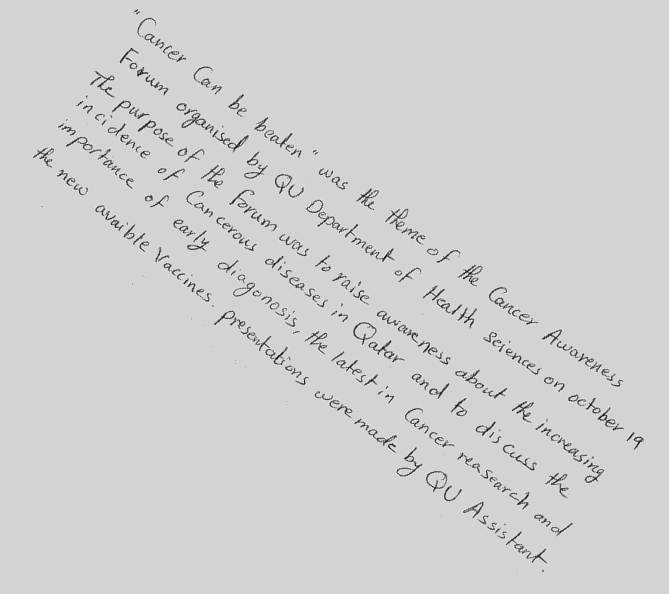 "Cancer Can be beaten" was the theme of the Cancer Awareness
Forum organised by QU Department of Health sciences on october 19
The purpose of the Forum was to raise awareness about the increasing
incidence of Cancerous diseases in Qatar and to discuss the
importance of early diagonosis, the latest in Cancer reasearch and
the new avaible Vaccines. presentations were made by QU Assistant.